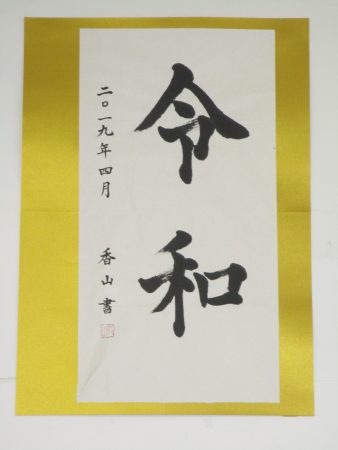 令和
二〇一九年四月
香山書